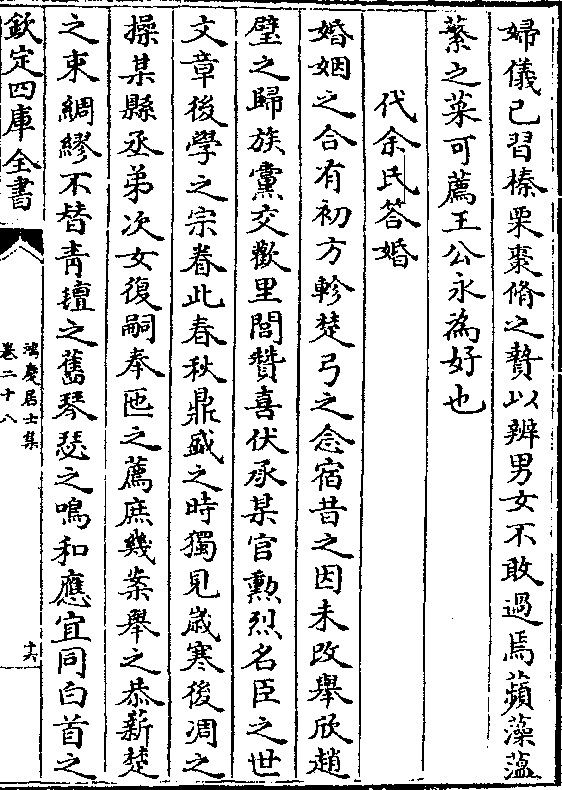 婦儀已習榛栗棗脩之贄以辨男女不敢過焉蘋藻薀
蘩之菜可薦王公永為好也
代余氏答婚
婚姻之合有初方軫楚弓之念宿昔之因未改舉欣趙
璧之歸族黨交歡里閭贊喜伏承某官勲烈名臣之世
文章後學之宗眷此春秋鼎盛之時獨見嵗寒後凋之
操某縣丞弟次女復嗣奉匜之薦庶幾案舉之恭薪楚
之束綢繆不替青氊之舊琴瑟之鳴和應宜同白首之
欽定四庫全書
鴻慶居士集
卷二十八
十六